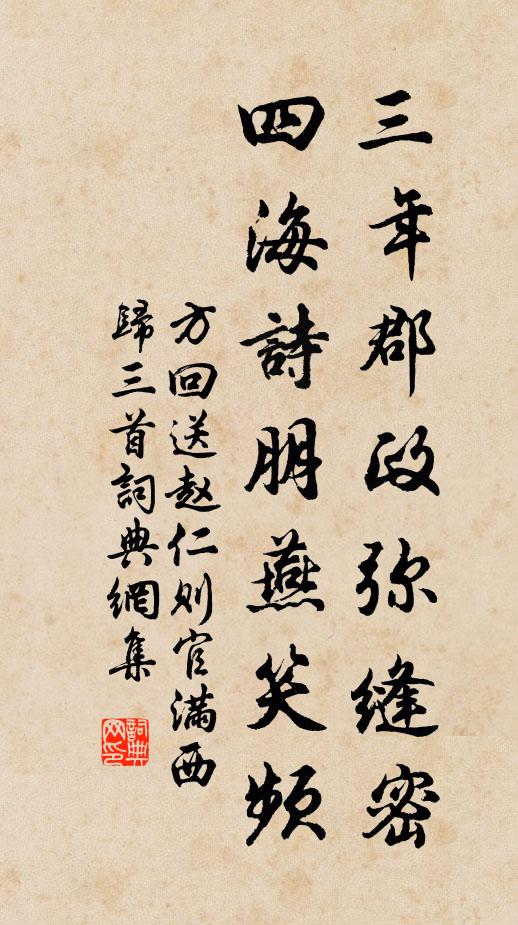 三年郡政弥缝密
四海詩朋燕笑頻
方回送赵仁则官满西
歸三首詞典網集
詞典网印